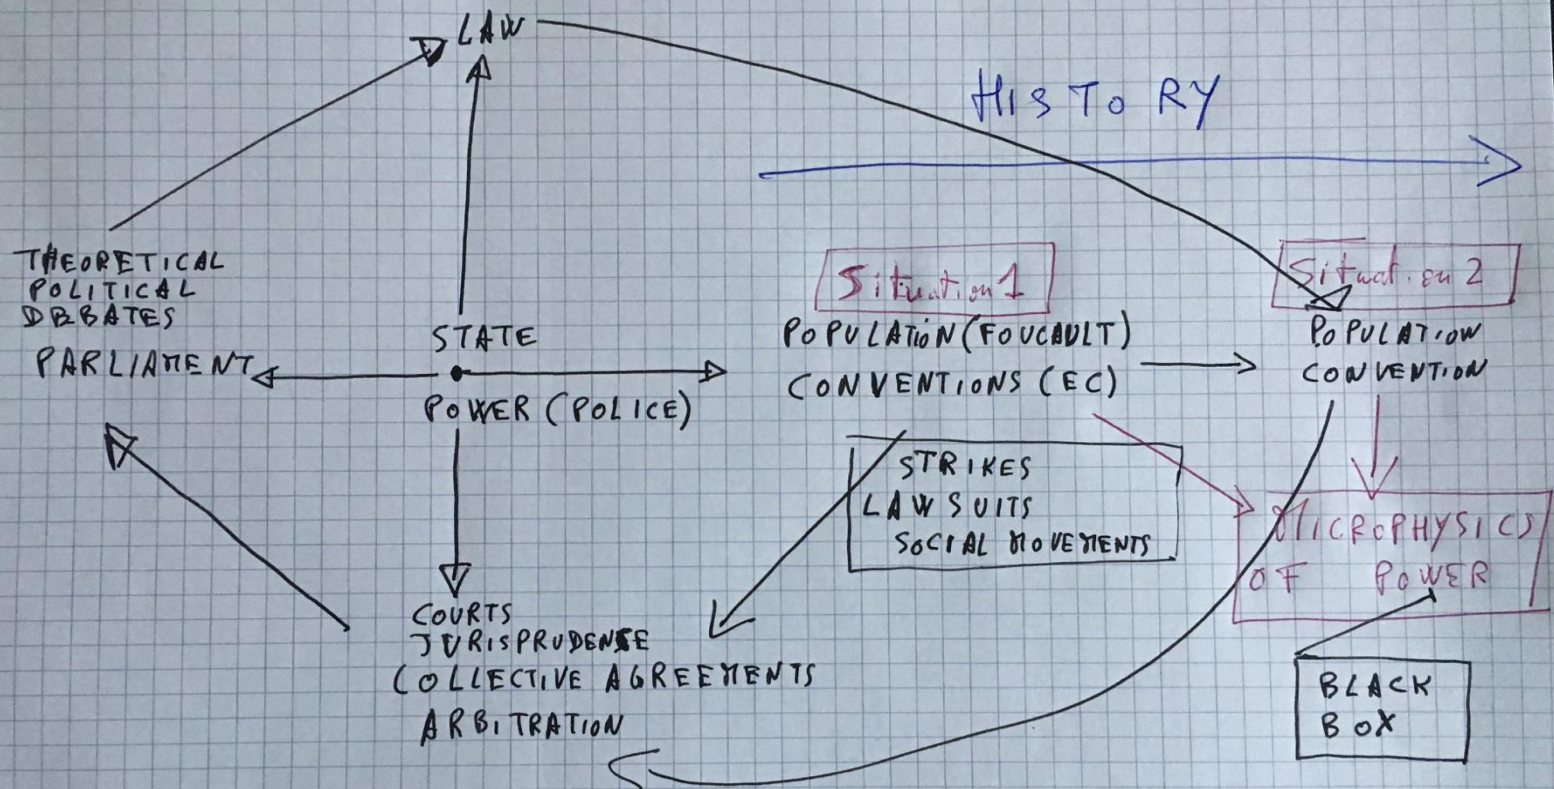 LAW
HISTORY
THEORETICAL
POLITICAL
DEBATES
PARLIAMENT
STATE
POWER (POLICE)
Situation 1
POPULATION (FOUCAULT)
CONVENTIONS (EC)
Situation 2
POPULATION
CONVENTION
STRIKES
LAWSUITS
SOCIAL MOVEMENTS
MICROPHYSICS
OF POWER
COURTS
JURISPRUDENSE
COLLECTIVE AGREEMENTS
ARBITRATION
BLACK
BOX